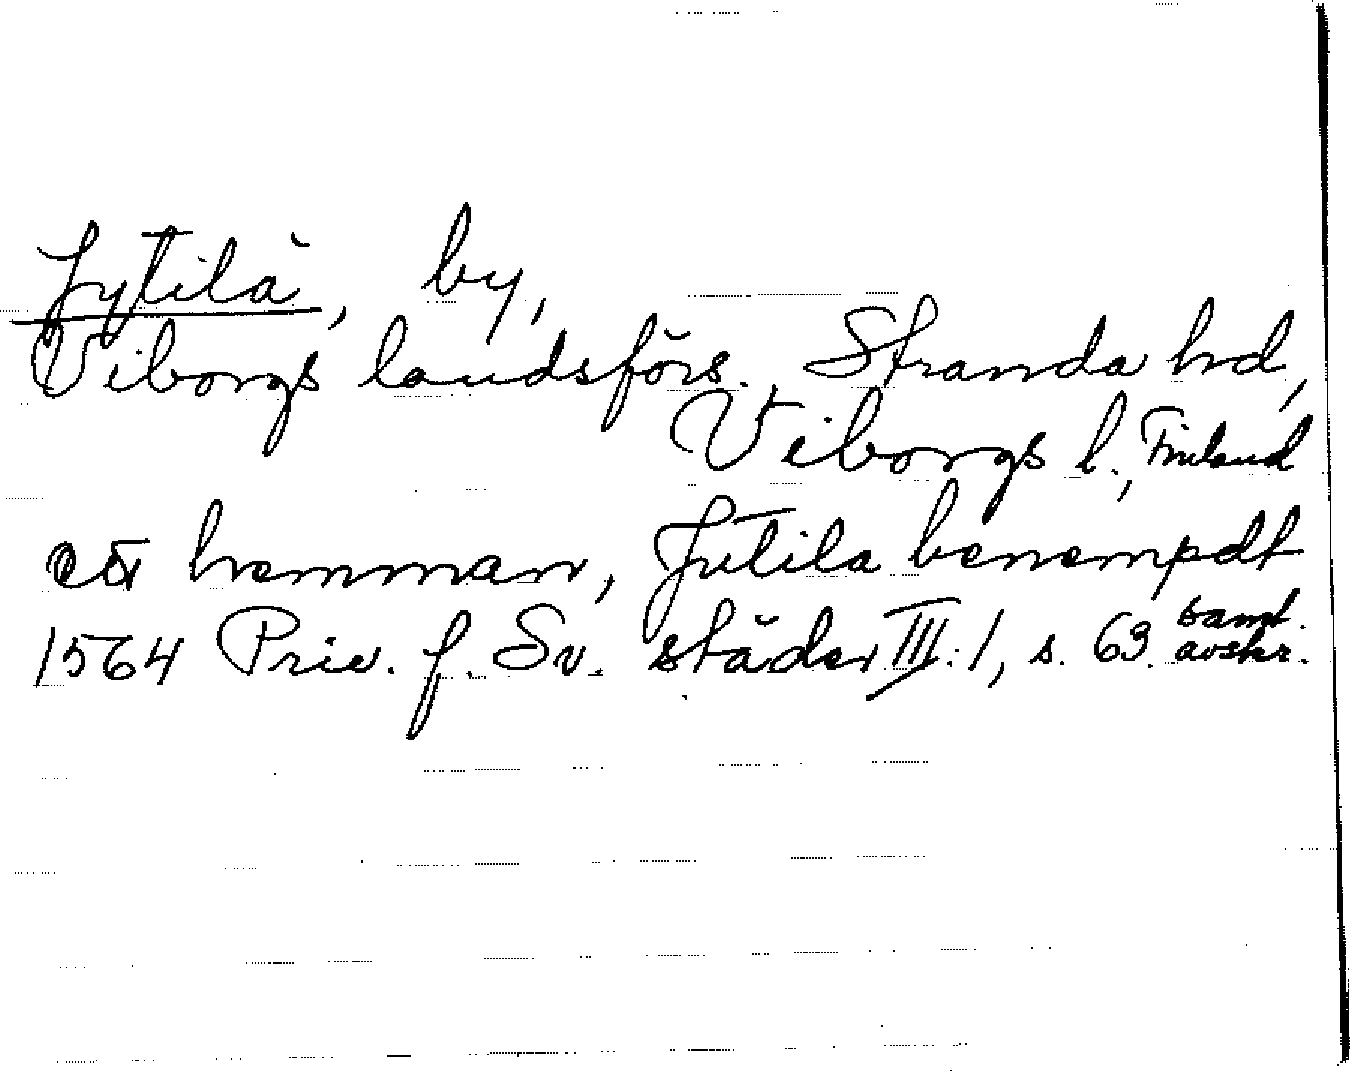 Jytilä, by,
Viborgs landsförs., Stranda hd,
Viborgs l., Finland
ett hemman, Jutila benempdt
1564 Priv. f. Sv. städer III:1, s. 63. samt. avskr.